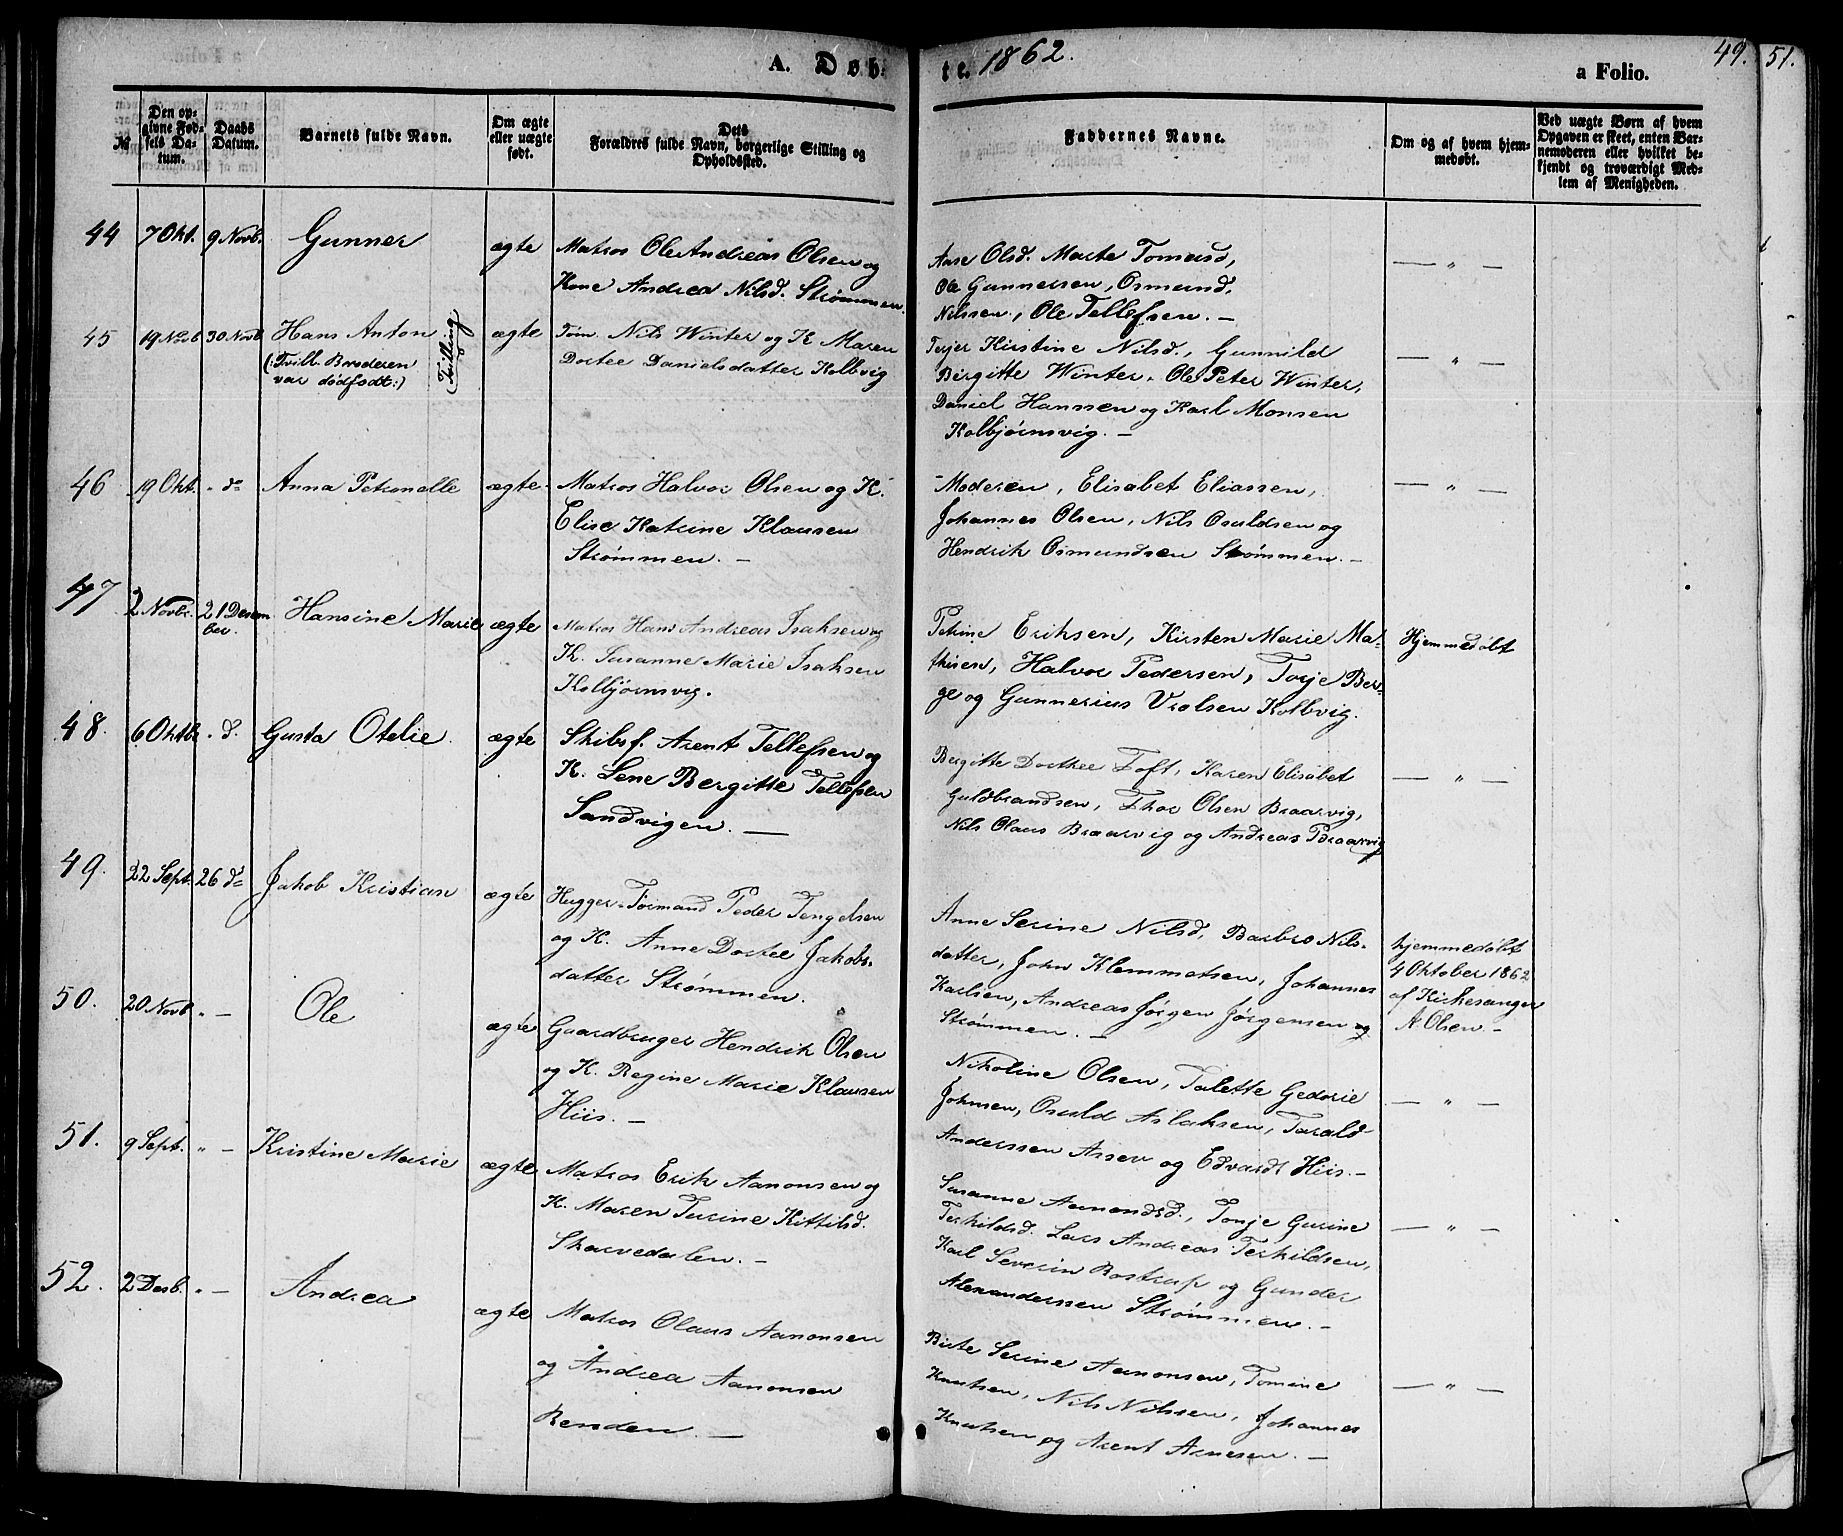 A. Døb-
te. 1862.
a Folio.
49.
51.
№
Den op-
givne Fød-
sels Da-
tum.
Daabs
Datum.
Barnets fulde Navn.
Om ægte
eller uægte
født.
Dets
Forældres fulde Navn, borgerlige Stilling og
Opholdssted.
Faddernes Navne.
Om og af hvem hjem-
medøbt.
Ved uægte Børn af hvem
Opgaven er skeet, enten Bar-
nemoderen eller hvilket be-
kjendt og troværdigt Med-
lem af Menigheden.
44 7 Okt. 9 Novb. Gunner ægte
Matros Ole Andreas Olsen og
Kone Andrea Nilsd. Strømmen
Aase Olsd. Marte Tomasd,
Ole Gunnersen, Osmund,
Nilssen, Ole Tellefsen. —
— " —
45 19 Novb 30 Novb Hans Anton ægte
(: Tvill. Broderen
var dødfødt:)
(Tvilling)
Tøm. Nils Winter og K. Maren
Dortee Danielsdatter Kolbvig
Terjer Kirstine Nilsd., Gunnild
Birgitte Winter. Ole Peter Winter,
Daniel Hanssen og Karl Monsen
Kolbjørnsvig. —
— " —
46 19 Okt. " do Anna Petronelle ægte
Matros Halvor Olsen og K.
Elise Katrine Klausen
Strømmen. —
Moderen, Elisabet Eliassen,
Johannes Olsen, Nils Osuldsen og
Hendrik Osmundsen Strømmen. —
— " —
47 2 Novbr. 21 Desem
ber. Hansine Marie ægte
Matros Hans Andreas Isaksen og
K. Susanne Marie Isaksen
Kolbjørnsvig.
Petrine Eriksen, Kirsten Marie Ma-
thisen, Halvor Pedersen, Torje Ber-
ge og Gunnerius Vrolsen Kolbvig.
Hjemmedøbt
48. 6 Oktbr. " d. Gusta Otelie ægte
Skibsf. Arent Tellefsen og
K. Lene Bergitte Tellefsen
Sandvigen. —
Bergitte Dorthee Toft, Karen Elisabet
Guldbrandsen, Thor Olsen Braarvig,
Nils Olaus Braarvig og Andreas Braarvig
— " —
49. 22 Sept. 26 do Jakob Kristian ægte
Hugger-Tørmand Peder Tengelsen
og K. Anne Dortee Jakobs-
datter Strømmen.
Anne Serine Nilsd, Barbro Nils-
datter, John Klemmetsen, Johannes
Karlsen, Andreas Jørgen Jørgensen og
Strømmen. —
hjemmedøbt
4 Oktober 1862
af Kirkesanger
A. Olsen. —
50. 20 Novb " — Ole ægte
Gaardbruger Hendrik Olsen
og K. Regine Marie Klausen
Hiis. —
Nikoline Olsen, Talette Gedorie
Johnsen, Osuld Aslaksen, Tarald
Anderssen Assev og Edvardt Hiis. —
— " —
51. 9 Sept. " — Kristine Marie ægte
Matros Erik Aanonsen og
K. Maren Turine Kittilsd.
Skarvedalen. —
Susanne Aamondsd., Tonje Gurine
Terkildsd. Lars Andreas Terkildsen,
Karl Severin Bostrup og Gunder
Alexanderssen Strømmen. —
— " —
52. 2 Desb. " — Andrea ægte
Matros Olaus Aanonsen
og Andrea Aanonsen
Renden. —
Birte Serine Aanonsen, Tomine
Knutsen, Nils Nilssen, Johannes
Knutsen og Arent Arnesen. —
— " —